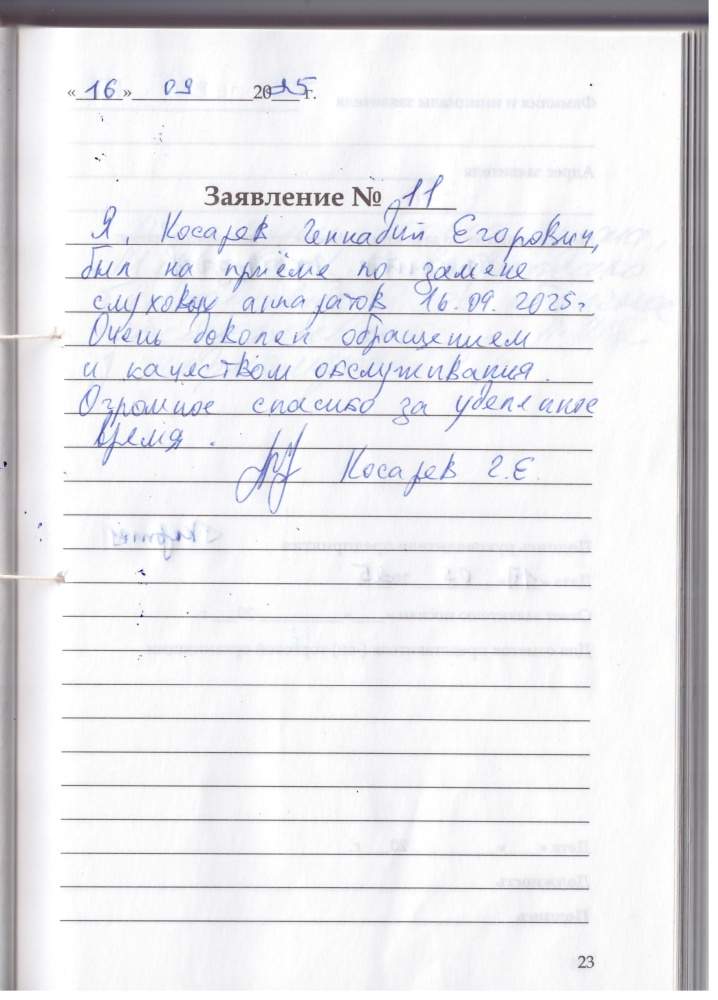 «16» 09 2025 г.
Заявление № 11
Я, Косарев Геннадий Егорович,
был на приёме по замене
слуховых аппаратов 16.09.2025г
Очень доволен обращением
и качеством обслуживания.
Огромное спасибо за уделенное
время.
Косарев Г.Е.
23